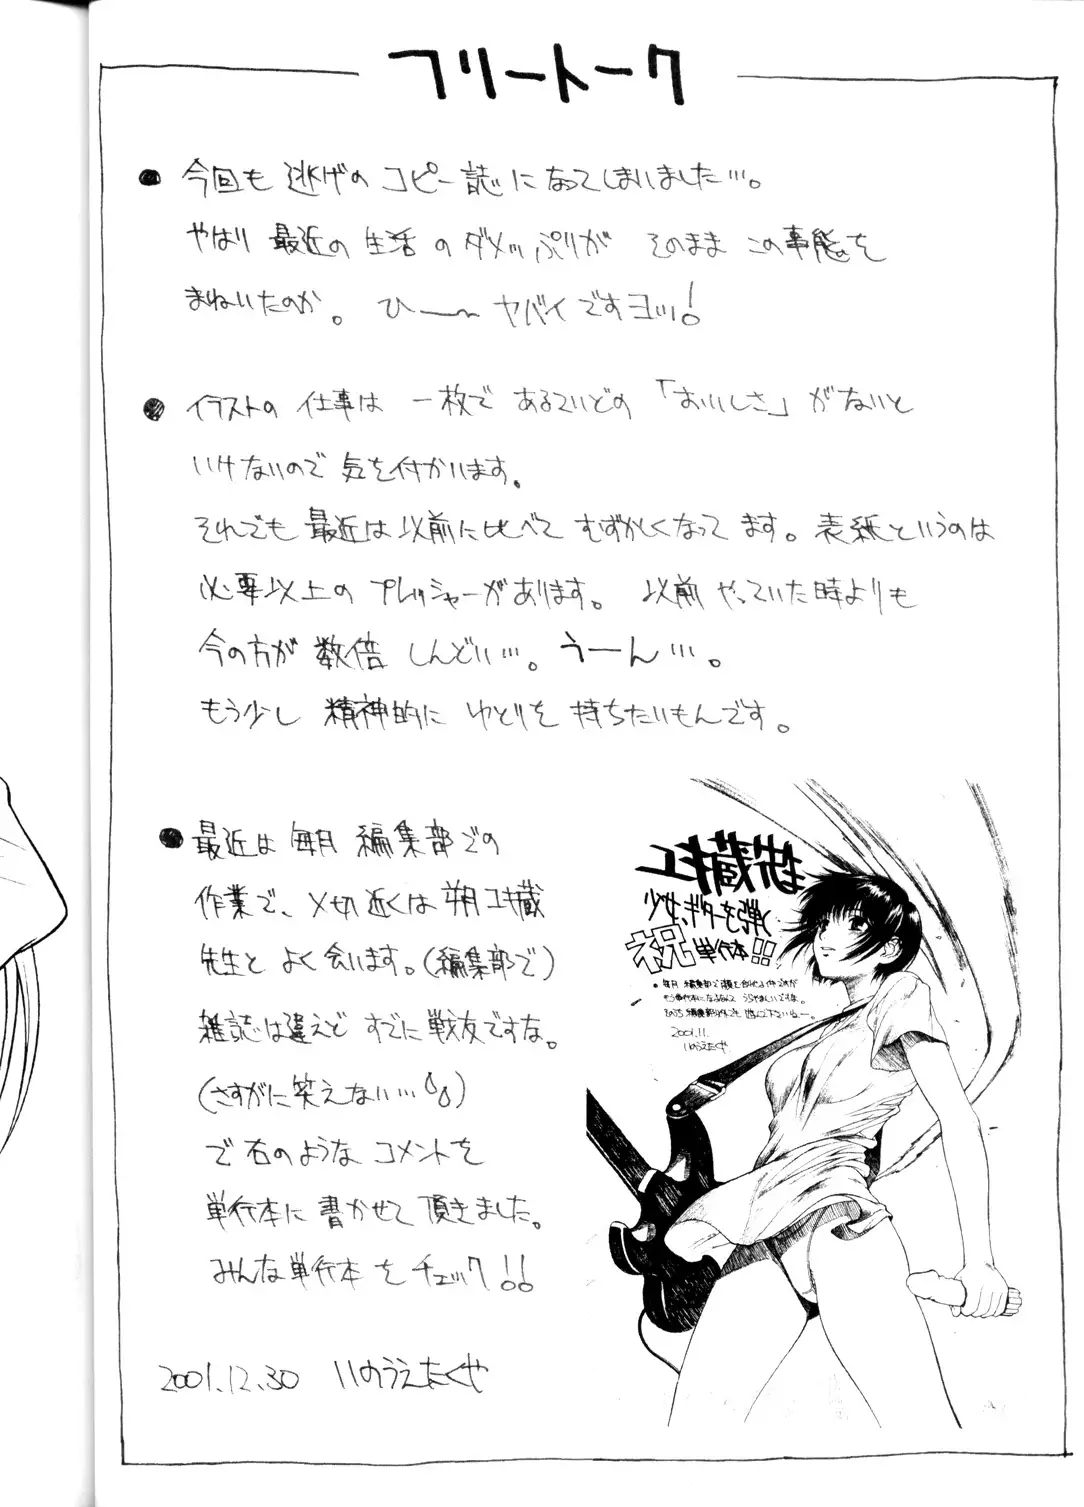 フリートーク
● 今回も 逃げの コピー誌になってしまいました…。
やはり 最近の 生活 の ダメッぷりが そのまま この事態を
まねいたのか。 ひー〜 ヤバイですヨッ!
● イラストの 仕事は 一枚で あるていどの 「おいしさ」がないと
いけないので 気を付かいます。
それでも 最近は以前に比べて むずかしくなってます。表紙というのは
必要以上の プレッシャーがあります。 以前 やっていた時よりも
今の方が 数倍 しんどい…。うーん…。
もう少し 精神的に ゆとりを 持ちたいもんです。
● 最近は 毎月 編集部での
作業で、〆切近くは 朔ユキ蔵
先生と よく会います。(編集部で)
雑誌は違えど すでに戦友ですな。
(さすがに笑えない…)
で 右のような コメントを
単行本に 書かせて 頂きました。
みんな単行本 を チェック!!
2001.12.30 いのうえたくや
ユキ蔵先生
少女、ギターを弾く
祝 単行本!!
● 毎月 編集部で顔を合わせる
もう単行本になるなんて うらやましいですな。
2001.11.
いのうえたくや